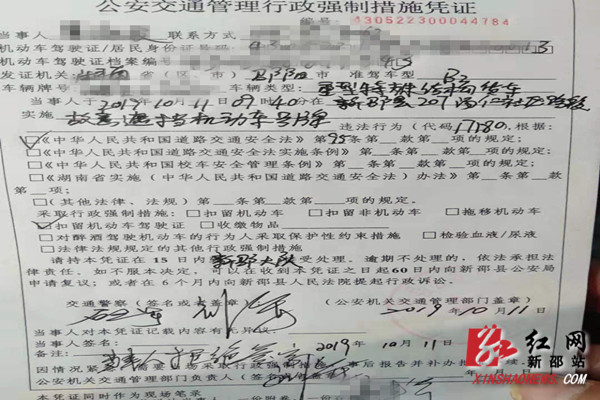 公安交通管理行政强制措施凭证
编号: 430522300044784
当事人 联系方式
机动车驾驶证/居民身份证号码 3
机动车驾驶证档案编号
发证机关: 湖南省(区、市) 邵阳市 准驾车型 B2
车辆牌号 车辆类型: 重型特殊结构货车
当事人于2019年10月11日09时40分在新邵县207
实施故意遮挡机动车号牌
违法行为(代码17180),根据:
☑《中华人民共和国道路交通安全法》第95条第__款第__项的规定;
□《中华人民共和国道路交通安全法实施条例》第__条第__款第__项的规定;
□《中华人民共和国校车安全管理条例》第__条第__款第__项的规定;
□《湖南省实施〈中华人民共和国道路交通安全法〉办法》第__条第__款
第__项;
□(其他法律、法规)第__条第__款第__项的规定。
采取行政强制措施: □扣留机动车 □扣留非机动车 □拖移机动车
☑扣留机动车驾驶证 □收缴物品
□对醉酒驾驶机动车的行为人采取保护性约束措施 □检验血液/尿液
□法律法规规定的其他行政强制措施
请持本凭证在15日内到新邵大队接受处理。逾期不处理的,依法承担法
律责任。如不服本决定,可以在收到本凭证之日起60日内向新邵县公安局
申请复议;或者在6个月内向新邵县人民法院提起行政诉讼。
交通警察(签名或盖章) (公安机关交通管理部门盖章)
2019年10月11日
当事人对本凭证记载内容有无异议
当事人签名: 2019年10月11日
备注: 当事人拒绝签字
因情况紧急 需要当场采取行政强制措施 事后报告并补办批
公安机关交通管理部门负责人(签名
本凭证同时作为现场笔录
红网
新邵站
XINSHAONEWS.COM